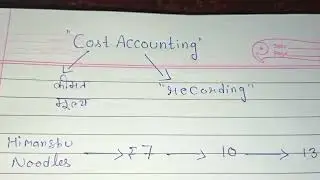 "Cost Accounting"
कीमत
मूल्य
"Recording"
Himanshu
Noodles → ₹7 → 10 → 13